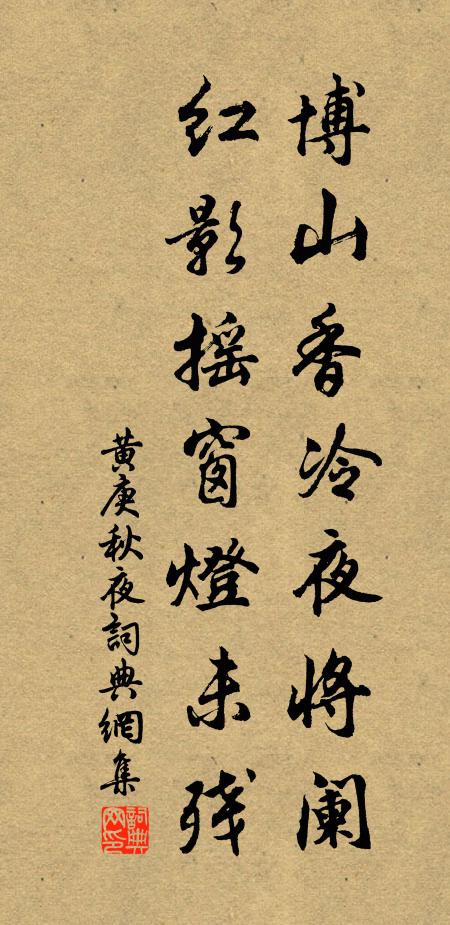 博山香冷夜将阑
红影摇窗燈未残
黃庚秋夜詞典網集
詞典网印